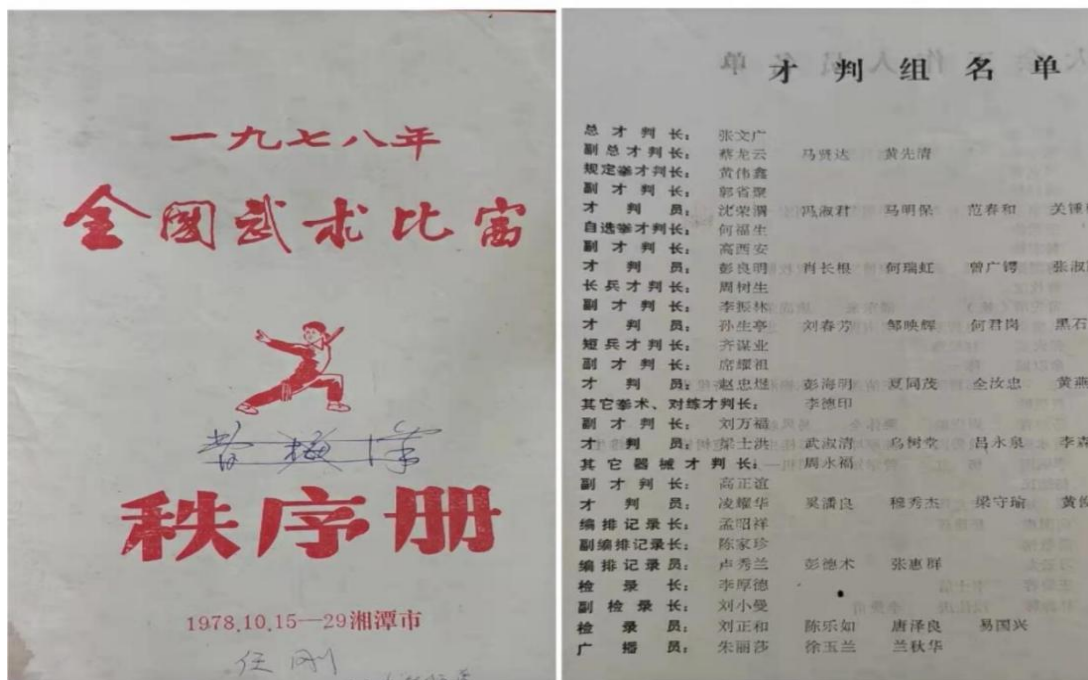 一九七八年
全国武术比宾
秩序册
1978.10.15—29湘潭市
任刚
才判组名单
总才判长：张文广
副总才判长：蔡龙云 马贤达 黄先清
规定拳才判长：黄伟鑫
副才判长：郭省聚
才判员：沈荣渭 冯淑君 马明保 范春和 关
自选拳才判长：何福生
副才判长：高西安
才判员：彭良明 肖长根 何瑞虹 曾广锷 张淑
长兵才判长：周树生
副才判长：李振林
才判员：孙生亭 刘春芳 邹映辉 何君岗 黑石
短兵才判长：齐谋业
副才判长：席耀祖
才判员：赵忠煜 彭海明 夏同茂 金汝忠 黄燕
其它拳术、对练才判长：李德印
副才判长：刘万福
才判员：梁士洪 武淑清 乌树堂 吕永泉 李森
其它器械才判长：周永福
副才判长：高正谊
才判员：凌耀华 吴潘良 穆秀杰 梁守瑜 黄
编排记录长：孟昭祥
副编排记录长：陈家珍
编排记录员：卢秀兰 彭德术 张惠群
检录长：李厚德
副检录长：刘小曼
检录员：刘正和 陈乐如 唐泽良 易国兴
广播员：朱丽莎 徐玉兰 兰秋华